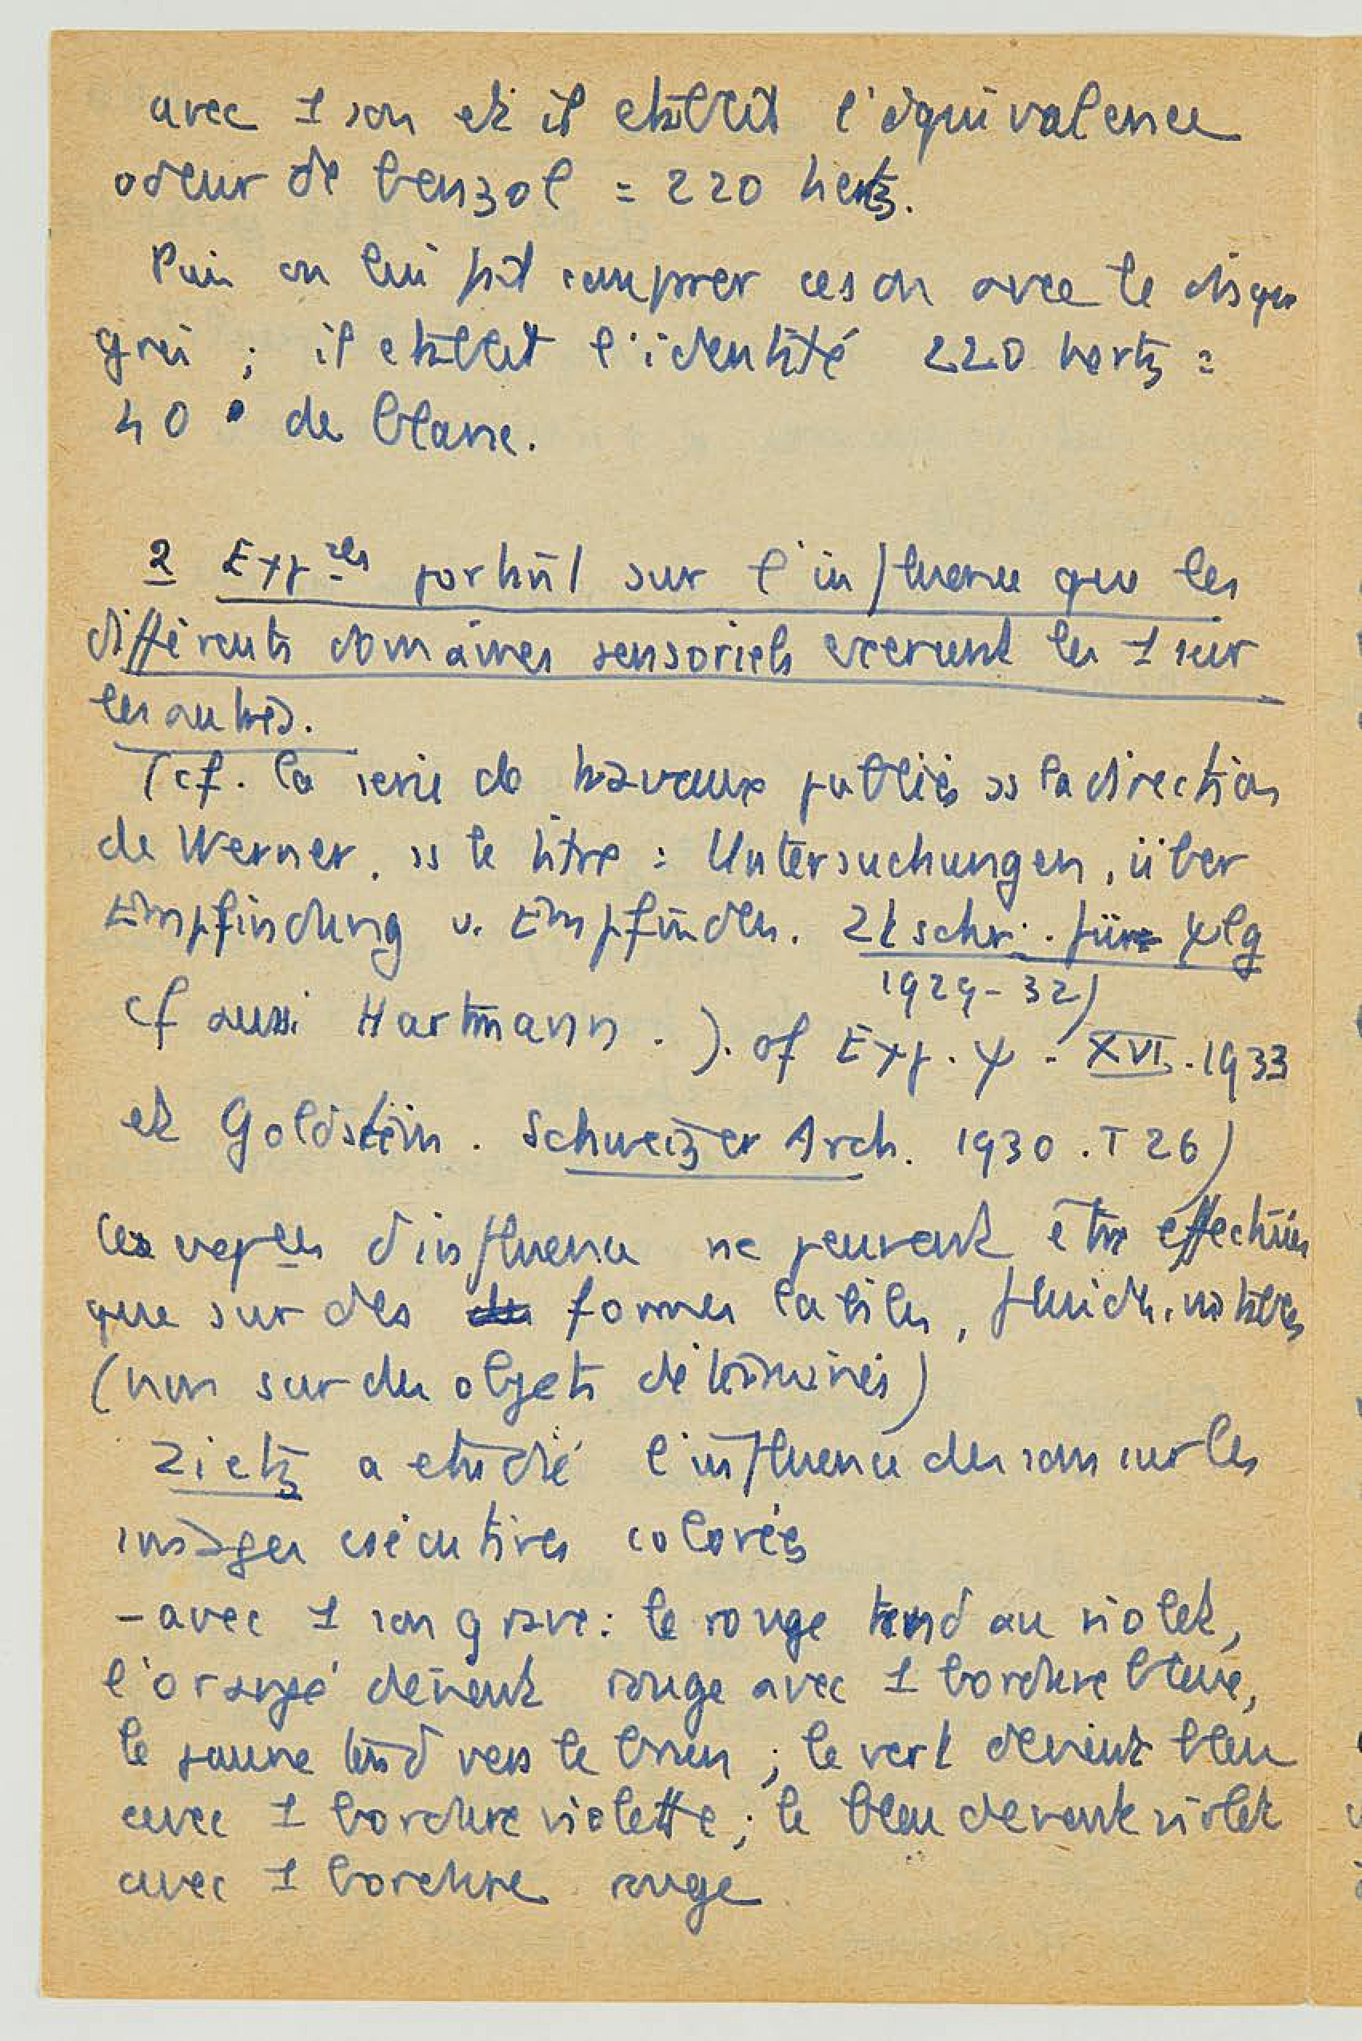 avec 1 son et il etablit l'équivalence
odeur de benzol = 220 hertz.
Puis on lui fit comparer ce son avec le disque
gris ; il etablit l'identité 220 hertz =
40° de blanc.
2 Exp. ces portant sur l'influence que les
différents domaines sensoriels exercent les 1 sur
les autres.
(cf. la serie de travaux publiés ss la direction
de Werner. ss le titre : Untersuchungen, über
Empfindung u. Empfinden. Ztschr. für ψlg
1929-32)
cf aussi Hartmann. J. of Exp. ψ - XVI. 1933
et Goldstein. Schweizer Arch. 1930. T 26)
Ces d'influence ne peuvent être effectuées
que sur des formes labiles, fluides,
(non sur des objets déterminés)
Zietz a etudié l'influence des sons sur les
images consécutives colorées
- avec 1 son grave : le rouge tend au violet,
l'orangé devient rouge avec 1 bordure bleue,
le jaune tend vers le brun ; le vert devient bleu
avec 1 bordure violette ; le bleu devient violet
avec 1 bordure rouge